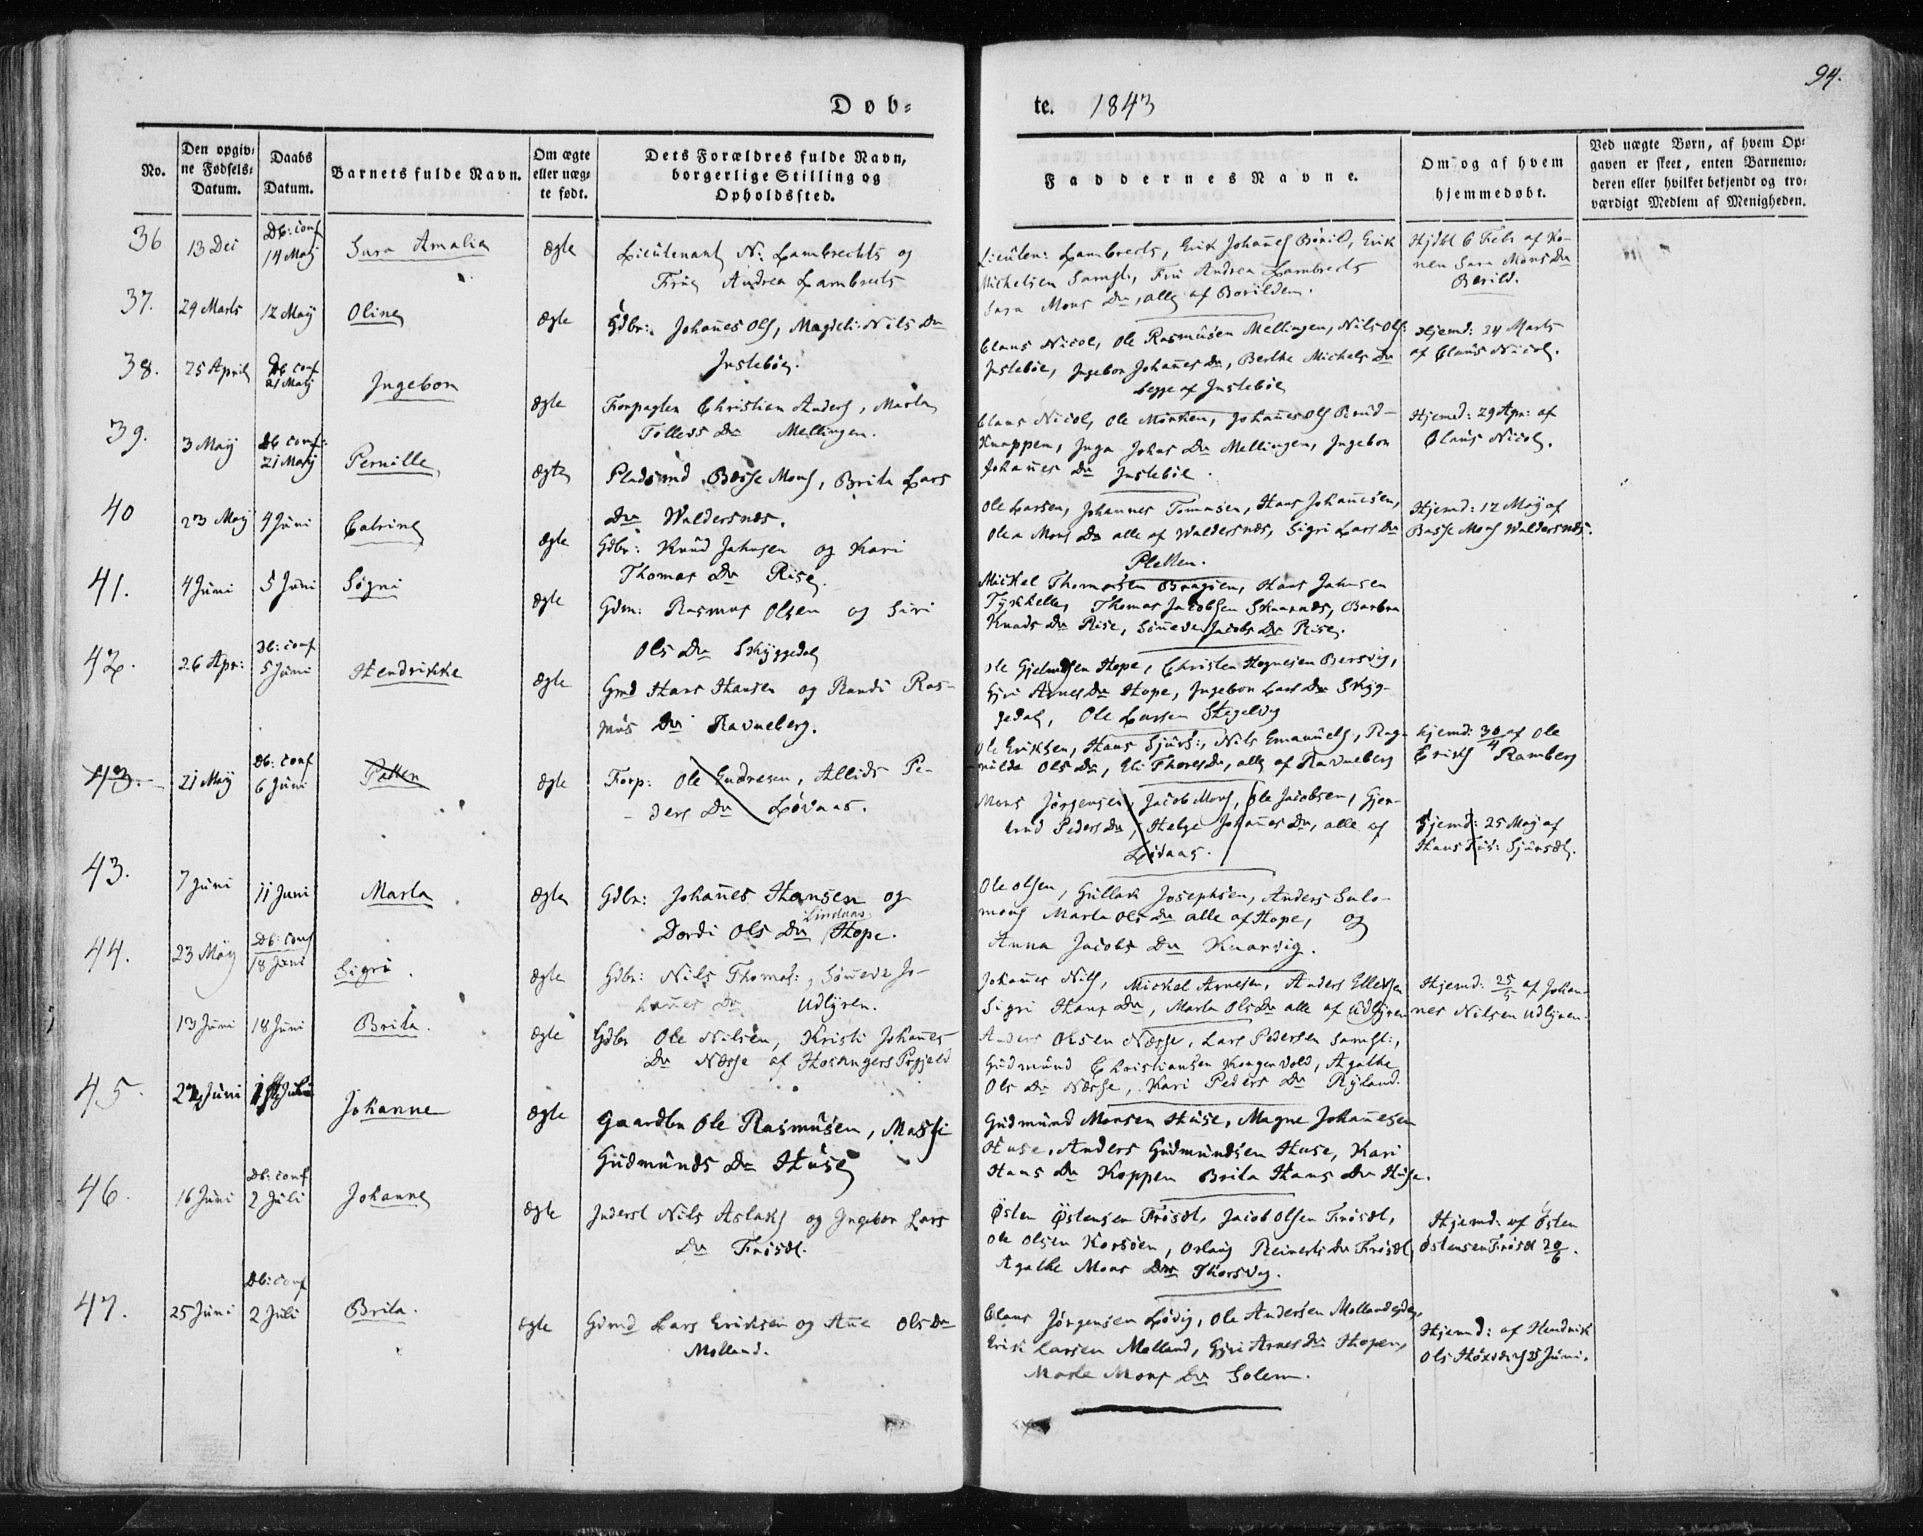 94.
Døb-
te. 1843
No.
Den opgiv-
ne Fødsels-
Datum.
Daabs
Datum.
Barnets fulde Navn.
Om ægte
eller uæg-
te født.
Dets Forældres fulde Navn,
borgerlige Stilling og
Opholdssted.
Faddernes Navne.
Om og af hvem
hjemmedøbt.
Ved uægte Børn, af hvem Op-
gaven er skeet, enten Barnemo-
deren eller hvilket bekjendt og tro-
værdigt Medlem af Menigheden.
36
13 Dec
Db: conf
14 Maij
Sara Amalia
ægte
Lieutenant N: Lambrechts og
Frue Andrea Lambrects
Lieuten: Lambrects, Erik Johanes Børild, Erik
Michelsen Samst, Fru Andrea Lambrects
Sara Mons Dr, alle af Børilden.
Hjdbt 6 Febr af Ko-
nen Sara Mons Dr
Børild.
37.
29 Marts
12 Maij
Oline
ægte
Gdbr: Johanes Ols, Magdeli Nils Dr
Instebøe.
Claus Nicol, Ole Rasmusen Mellingen, Nils Ols:
Instebøe, Ingebor Johanes Dr, Berthe Michels Dr
begge af Instebøe
Hjemd: 24 Marts
af Claus Nicol.
38.
25 April
Db conf
21 Maij
Ingebor
ægte
Forpagter Christian Anders, Marta
Tollevs Dr Mellingen.
Claus Nicol, Ole Mørken, Johanes Ols Brud-
Knappen, Inga Johns Dr Mellingen, Ingebor
Johanes Dr Instebøe.
Hjemd: 29 Apr: af
Claus Nicol.
39.
3 Maij
Db conf:
21 Maij
Pernille
ægte
Pladsmd Basse Mons, Brita Lars
Dr Waldersnæs.
Ole Larsen, Johannes Tomasen, Hans Johanesen,
Olea Mons Dr alle af Waldersnæs, Sigri Lars Dr
Pletten.
Hjemd: 12 Maij af
Basse Mons Waldersnæs.
40
23 Maij
4 Juni
Catrine
ægte
Gdbr: Knud Jahnsen og Kari
Thomas Dr Rise.
Mickel Thomassen Bragien, Hans Jahnsen
Tyskhelle, Thomas Jacobsen Skuarnæs, Barbra
Knuds Dr Rise, Sønneve Jacobs Dr Rise.
41.
4 Juni
5 Juni
Søgni
ægte
Gdm: Rasmus Olsen og Siri
Ols Dr Skyggedal
Ole Gjelmdsen Hope, Christen Hognesen Bersvig,
Gjri Arnes Dr Hope, Ingebor Lars Dr Skyg-
gedal, Ole Larsen Stegelvig
42.
26 Apr:
Db: conf
5 Juni
Hendrikke
ægte
Gmd Hans Hansen og Randi Ras-
mus Dr Ravneberg.
Ole Eriksen, Hans Sjurs:, Nils Emanuels, Rag-
nilde Ols Dr, Eli Thores Dr, alle af Ravneberg
hjemd: 30/4 af Ole
Eriks Ramberg
43.
21 Maij
Db: conf
6 Juni
Petter
ægte
Forp: Ole Endresen, Allids Pe-
ders Dr Løvaas.
Mons Jørgensen, Jacob Mons, Ole Jacobsen, Gjer-
trud Peders Dr, Helge Johanes Dr, alle af
Løvaas.
Hjemd: 25 Maij af
Hans
43.
7 Juni
11 Juni
Marta
ægte
Gdbr: Johanes Hansen og
Dordi Ols Dr Hope.
Lindaas
Ole Olsen, Gullak Josephsen, Anders Salo-
mons Marta Ols Dr alle af Hope, og
Anna Jacobs Dr Knarvig.
44.
23 Maij
Db: conf
18 Juni
Sigri.
ægte
Gdbr: Nils Thomas:, Sønneve Jo-
hanes Dr Udlyren.
Johanes Nils, Mickel Arnesen, Anders Ellevsen
Sigri Hans Dr, Marta Ols Dr alle af Udlyren
Hjemd: 25/5 af Johan-
nes Nilsen Udlyren.
13 Juni
18 Juni
Brita.
ægte
Gdbr Ole Nilsen, Kristi Johanes
Dr Næsse af Hosangers Prgjeld
Anders Olsen Næsse, Lars Pedersen Samst:,
Gudmund Christiansen Kongevold, Agathe
Ols Dr Næsse, Kari Peders Dr Ryland.
45.
Juni
Juli
Johanne
ægte
Gaardbr Ole Rasmusen, Massi
Gudmunds Dr Huse
Gudmund Monsen Huse, Magne Johanesen
Huse, Anders Gudmundsen Huse, Kari
Hans Dr Koppen Brita Hans Dr Huse.
46.
16 Juni
Db: conf
2 Juli
Johanne
ægte
Inderst Nils Aslaks og Ingebor Lars
Dr Frøsdt.
Østen Østensen Frøsdt, Jacob Olsen Frøsdt,
Ole Olsen Korsøen, Orlaug Reinerts Dr Frøsdt,
Agathe Mons Dtr Thorsvig.
Hjemd: af Østen
Østensen Frøsdt 20/6.
47.
25 Juni
Db: conf
2 Juli
Brita.
ægte
Gdmd Lars Eriksen og Ane Ols Dr
Molland.
Claus Jørgensen Løvig, Ole Andersen Mollandseide,
Erik Larsen Molland, Gjri Arnes Dr Hopen,
Marte Mons Dr Solem.
Hjemd: af Hendrik
Ols 25 Juni.